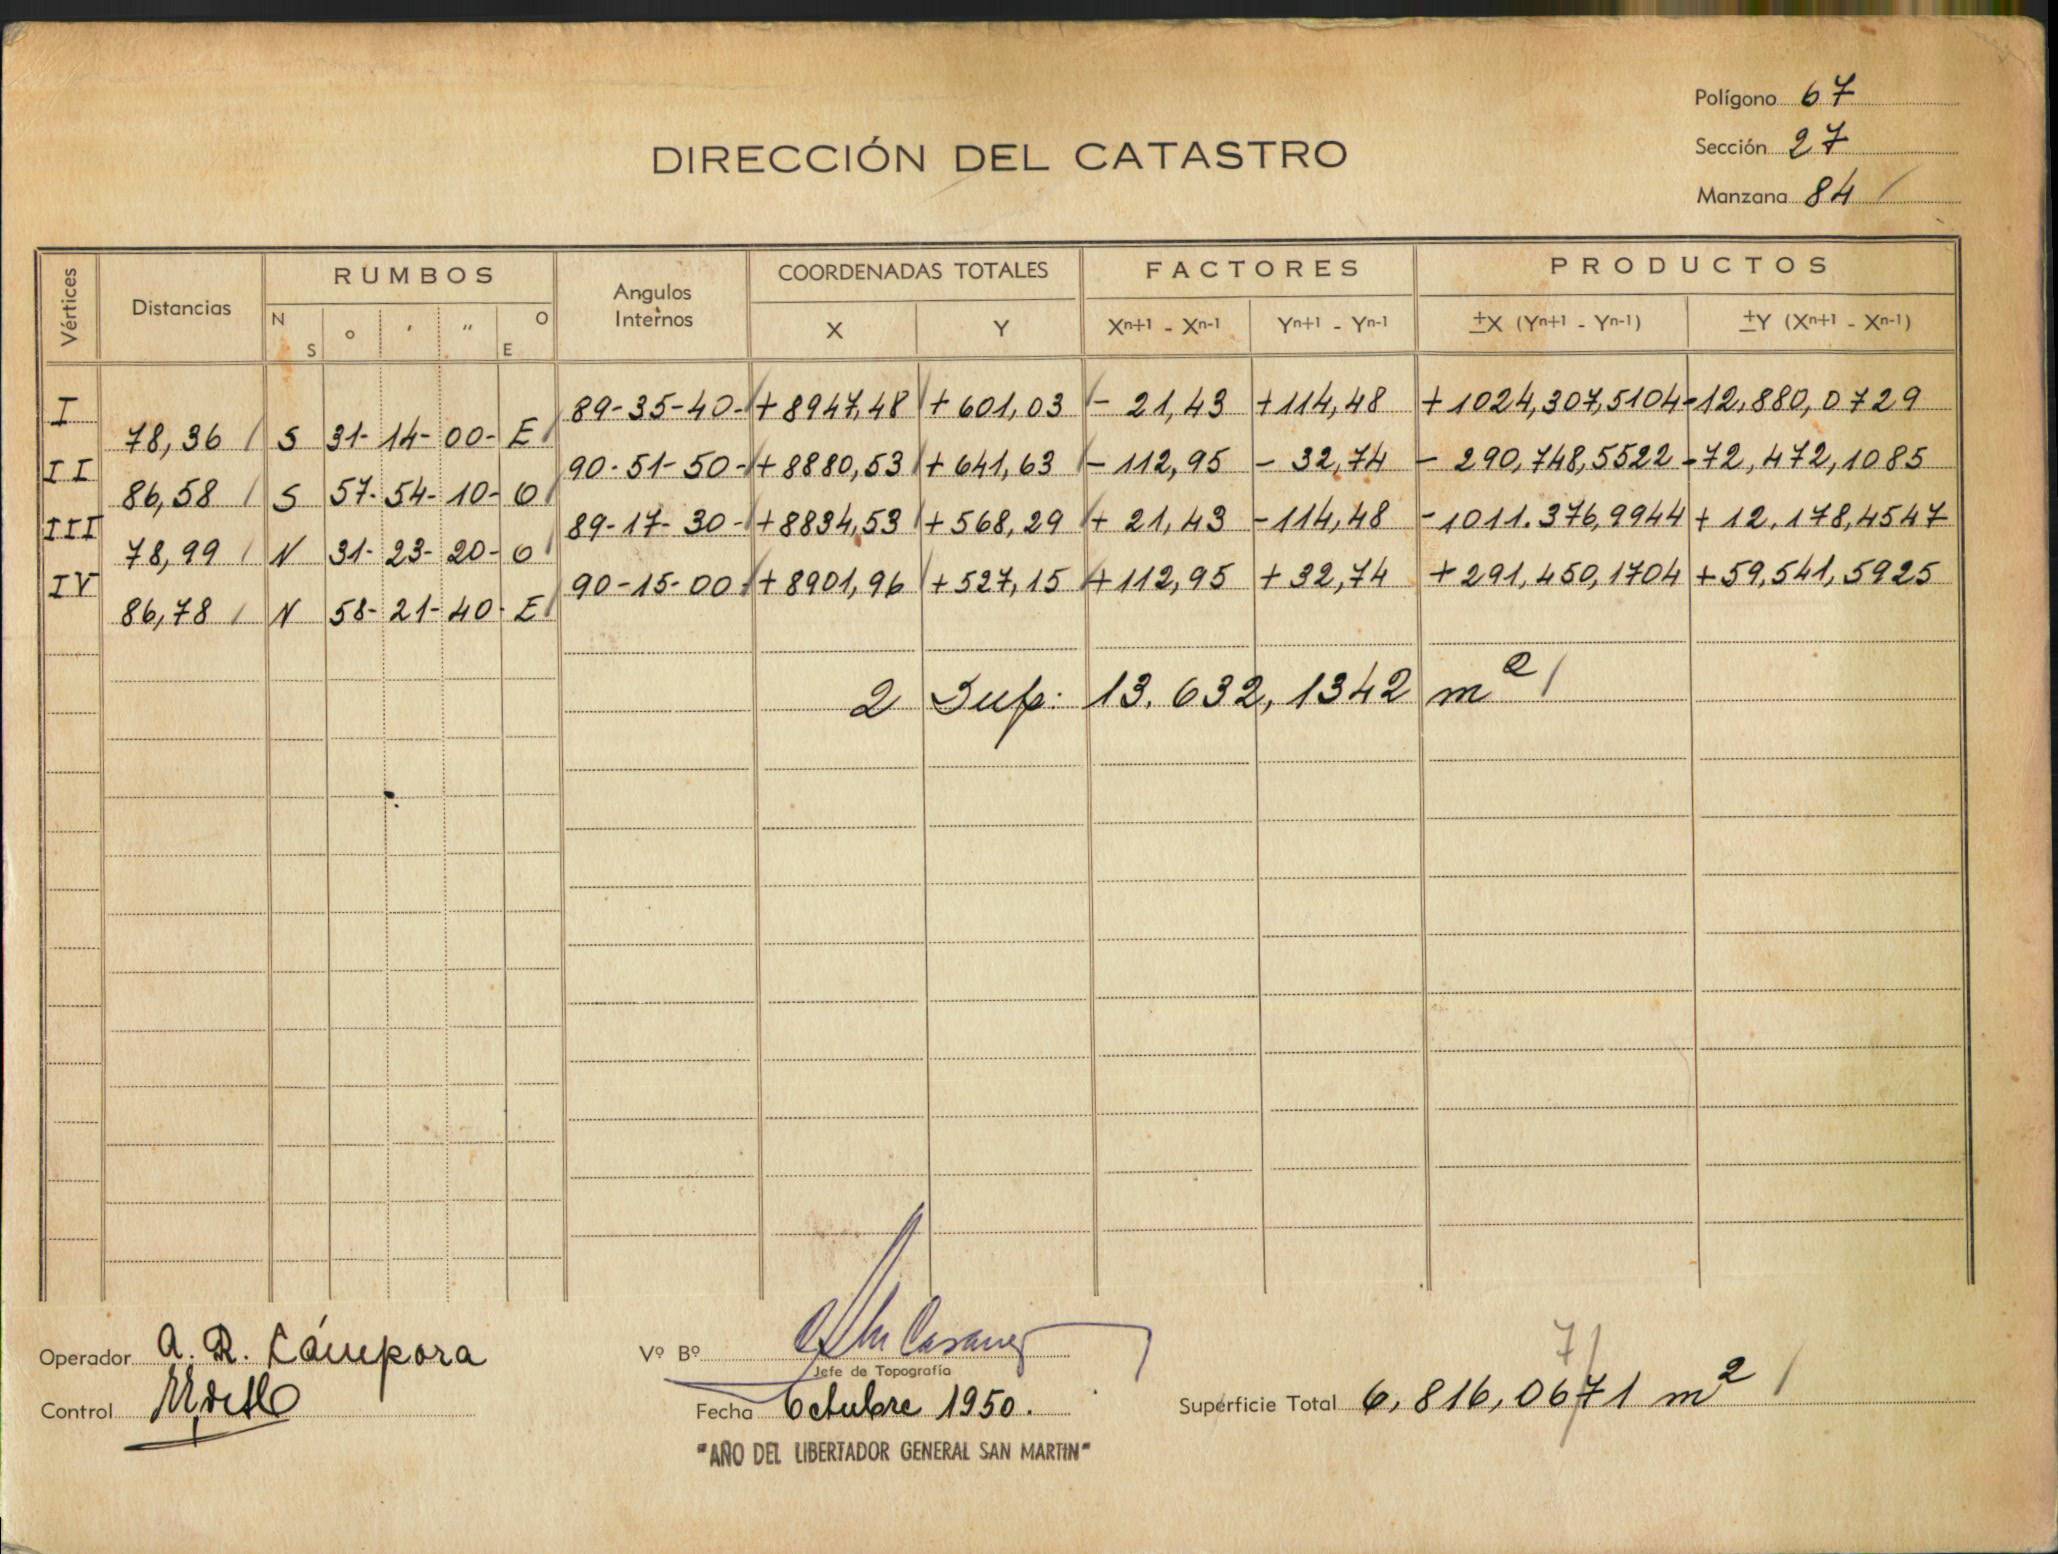 Polígono 67
Sección 27
Manzana 84
DIRECCIÓN DEL CATASTRO
Vértices Distancias RUMBOS Angulos Internos COORDENADAS TOTALES FACTORES PRODUCTOS
N S ° ' " O E X Y Xn+1 - Xn-1 Yn+1 - Yn-1 ±X (Yn+1 - Yn-1) ±Y (Xn+1 - Xn-1)
I 89-35-40- +8947,48 +601,03 - 21,43 +114,48 +1024,307,5104 -12,880,0729
78,36 S 31- 14- 00- E
II 90-51-50- +8880,53 +641,63 - 112,95 - 32,74 - 290,748,5522 -72,472,1085
86,58 S 57- 54- 10- O
III 89-17-30- +8834,53 +568,29 + 21,43 -114,48 -1011.376,9944 + 12.178,4547
78,99 N 31- 23- 20- O
IV 90-15-00- +8901,96 +527,15 +112,95 + 32,74 +291,450,1704 +59,541,5925
86,78 N 58- 21- 40- E
2 Sup: 13.632,1342 m2
Operador A. R. Cámpora
Control
Vº Bº
Jefe de Topografía
Fecha Octubre 1950.
"AÑO DEL LIBERTADOR GENERAL SAN MARTIN"
7
Superficie Total 6,816,0671 m2